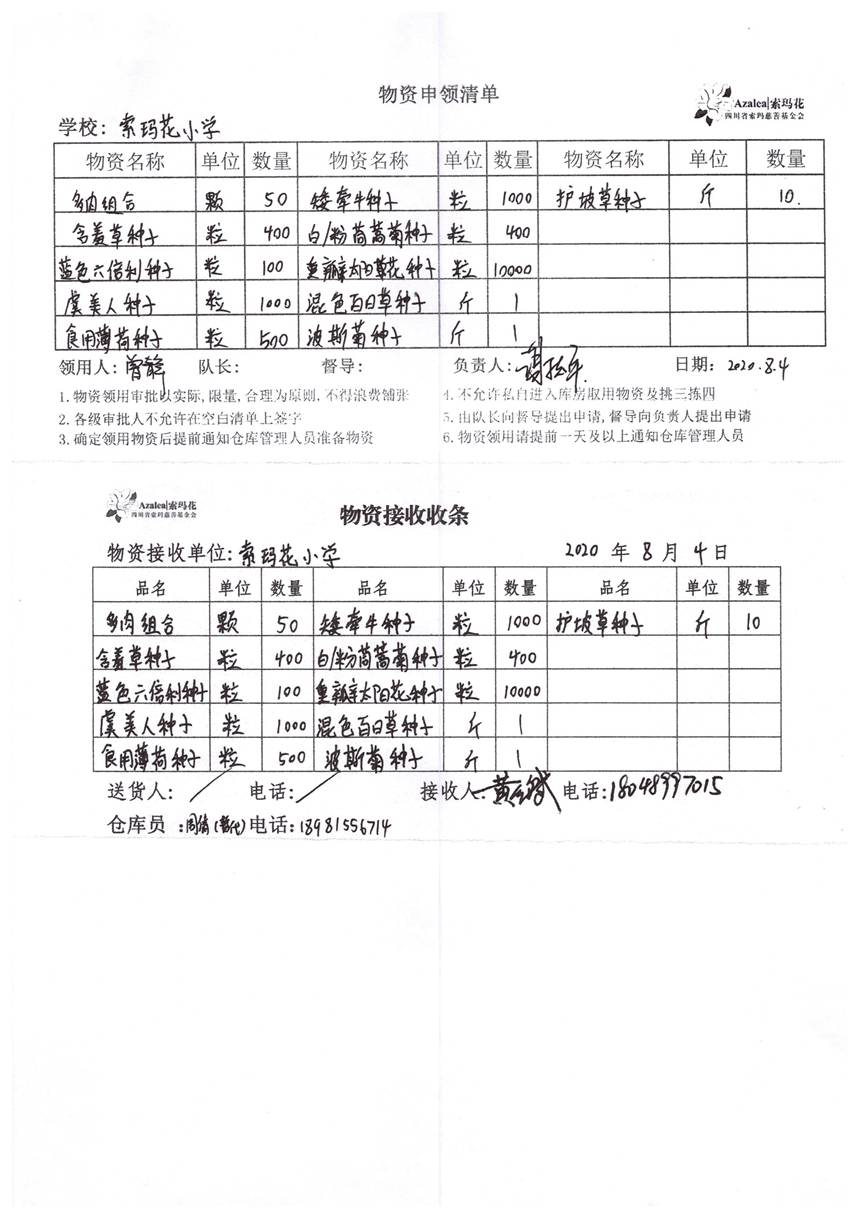 物资申领清单
Azalea|索玛花
四川省索玛慈善基金会
学校：索玛花小学
物资名称 单位 数量 物资名称 单位 数量 物资名称 单位 数量
多肉组合 颗 50 矮牵牛种子 粒 1000 护坡草种子 斤 10.
含羞草种子 粒 400 白/粉茼蒿菊种子 粒 400
蓝色六倍利种子 粒 100 重瓣太阳花种子 粒 10000
虞美人种子 粒 1000 混色百日草种子 斤 1
食用薄荷种子 粒 500 波斯菊种子 斤 1
领用人：曾静 队长： 督导： 负责人： 日期：2020.8.4
1.物资领用审批以实际,限量,合理为原则,不得浪费铺张 4.不允许私自进入库房取用物资及挑三拣四
2.各级审批人不允许在空白清单上签字 5.由队长向督导提出申请,督导向负责人提出申请
3.确定领用物资后提前通知仓库管理人员准备物资 6.物资领用请提前一天及以上通知仓库管理人员
Azalea|索玛花
四川省索玛慈善基金会
物资接收收条
物资接收单位：索玛花小学 2020 年 8 月 4 日
品名 单位 数量 品名 单位 数量 品名 单位 数量
多肉组合 颗 50 矮牵牛种子 粒 1000 护坡草种子 斤 10
含羞草种子 粒 400 白/粉茼蒿菊种子 粒 400
蓝色六倍利种子 粒 100 重瓣太阳花种子 粒 10000
虞美人种子 粒 1000 混色百日草种子 斤 1
食用薄荷种子 粒 500 波斯菊种子 斤 1
送货人： 电话： 接收人： 电话：18048997015
仓库员：周倩(暂代) 电话：18981556714